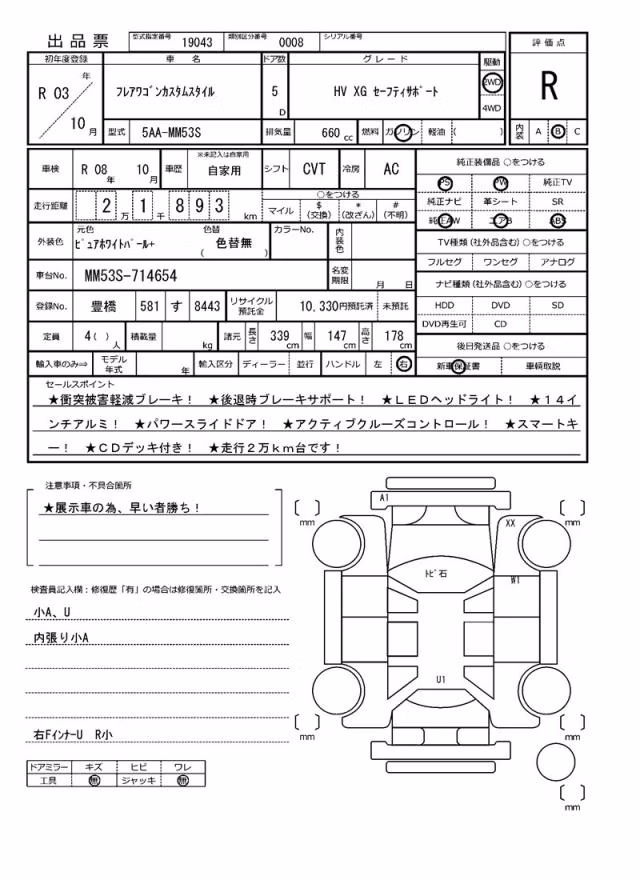 出品票 型式指定番号 19043 類別区分番号 0008 シリアル番号
評価点
R
初年度登録 車名 ドア数 グレード 駆動
R 03 年 10 月
フレアワゴンカスタムスタイル 5 D HV XG セーフティサポート 2WD 4WD
型式 5AA-MM53S 排気量 660 cc 燃料 ガソリン 軽油 ( )
内装 A B C
車検 R 08 年 10 月 車歴 ※未記入は自家用 自家用 シフト CVT 冷房 AC
走行距離 2 万 1 千 8 9 3 km
○をつける
マイル $ (交換) * (改ざん) # (不明)
外装色 元色 ピュアホワイトパール+ 色替 ( 色替無 ) カラーNo. 内装色
車台No. MM53S-714654 名変期限 月 日
登録No. 豊橋 581 す 8443 リサイクル預託金 10,330円預託済 未預託
定員 4( ) 人 積載量 kg 諸元 長さ 339 cm 幅 147 cm 高さ 178 cm
輸入車のみ⇒ モデル年式 年 輸入区分 ディーラー 並行 ハンドル 左 右
純正装備品 ○をつける
PS PW 純正TV
純正ナビ 革シート SR
純正AW エアB ABS
TV種類 (社外品含む) ○をつける
フルセグ ワンセグ アナログ
ナビ種類 (社外品含む) ○をつける
HDD DVD SD
DVD再生可 CD
後日発送品 ○をつける
新車保証書 車輌取説
セールスポイント
★衝突被害軽減ブレーキ! ★後退時ブレーキサポート! ★LEDヘッドライト! ★14イ
ンチアルミ! ★パワースライドドア! ★アクティブクルーズコントロール! ★スマートキ
ー! ★CDデッキ付き! ★走行2万km台です!
注意事項・不具合箇所
★展示車の為、早い者勝ち!
検査員記入欄:修復歴「有」の場合は修復箇所・交換箇所を記入
小A、U
内張り小A
右Fインナ-U R小
ドアミラー キズ ヒビ ワレ
工具 無 ジャッキ 無
A1
XX
トビ石
W1
U1
[ ] mm
[ ] mm
[ ] mm
[ ] mm
[ ] mm